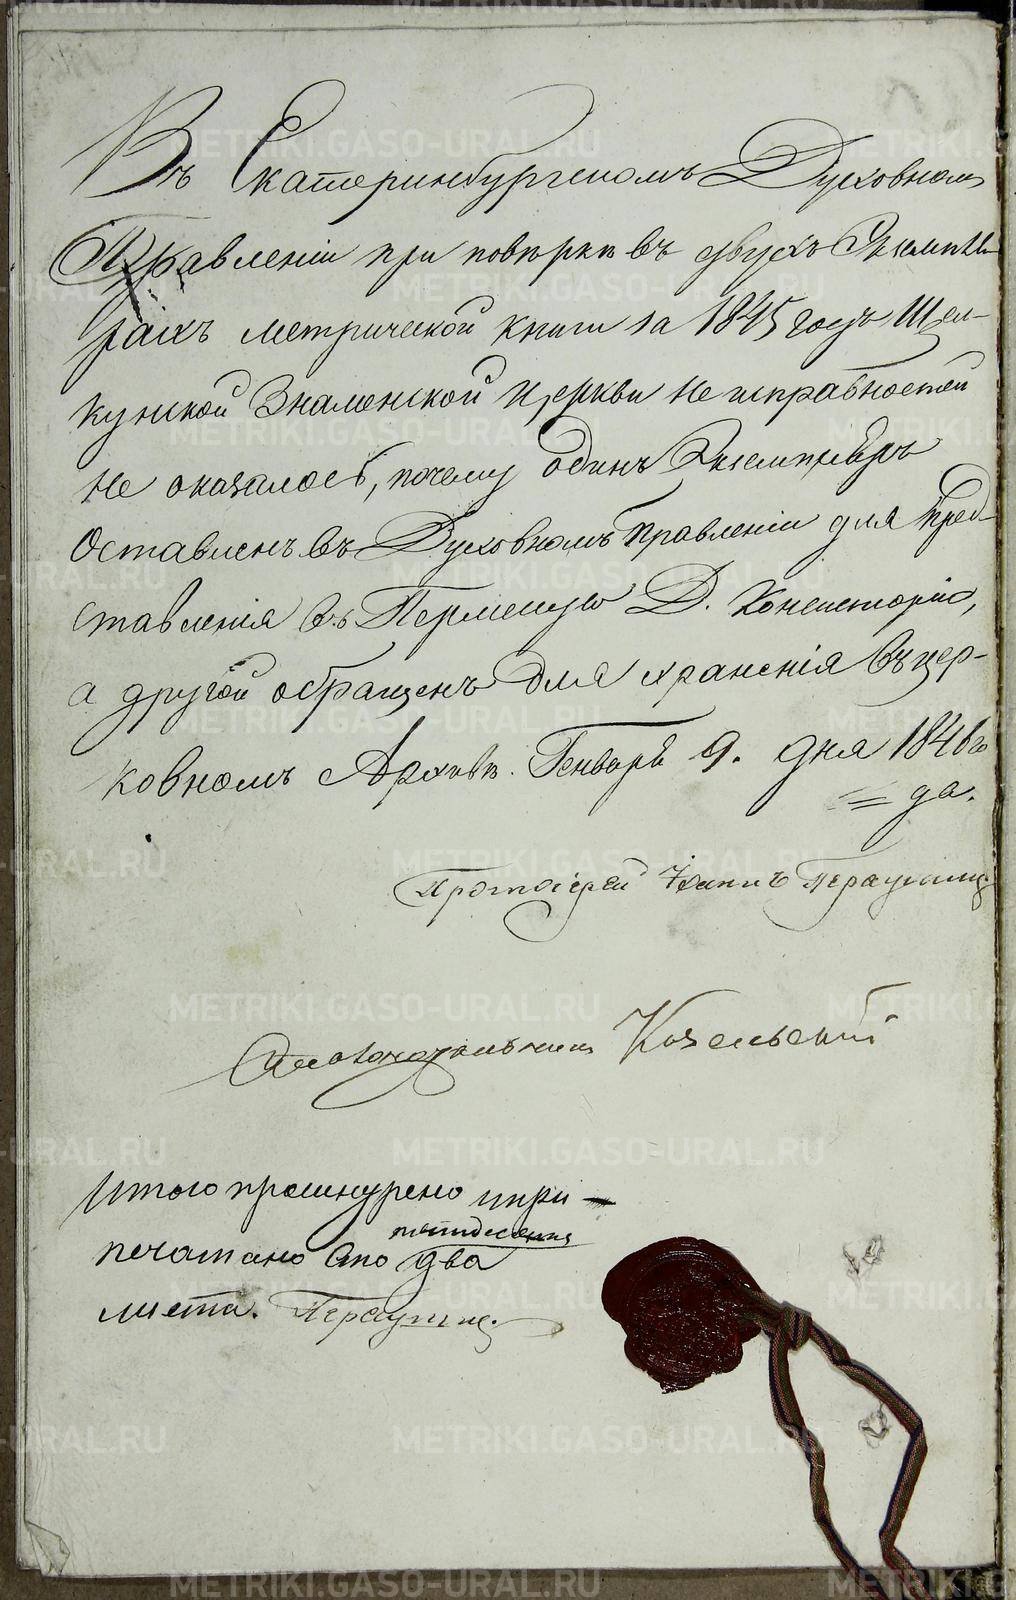 Въ Екатеринбургскомъ Духовномъ
Правленіи при повѣркѣ въ двухъ Экземпля-
рахъ метрической книги за 1845 годъ Щел-
кунской Знаменской Церкви неисправностей
не оказалось, почему одинъ Экземпляръ
Оставленъ въ Духовномъ Правленіи для пред-
ставленія въ Пермскую Д. Консисторію,
а другой обращенъ для храненія въ цер-
ковномъ Архивѣ. Генваря 9. дня 1846 го
да.
Протоіерей Іоаннъ
Столоначальникъ Козельскій
Итого прошнурено и при-
пятидесятъ
печатано Сто два
листа.
METRIKI.GASO-URAL.RU